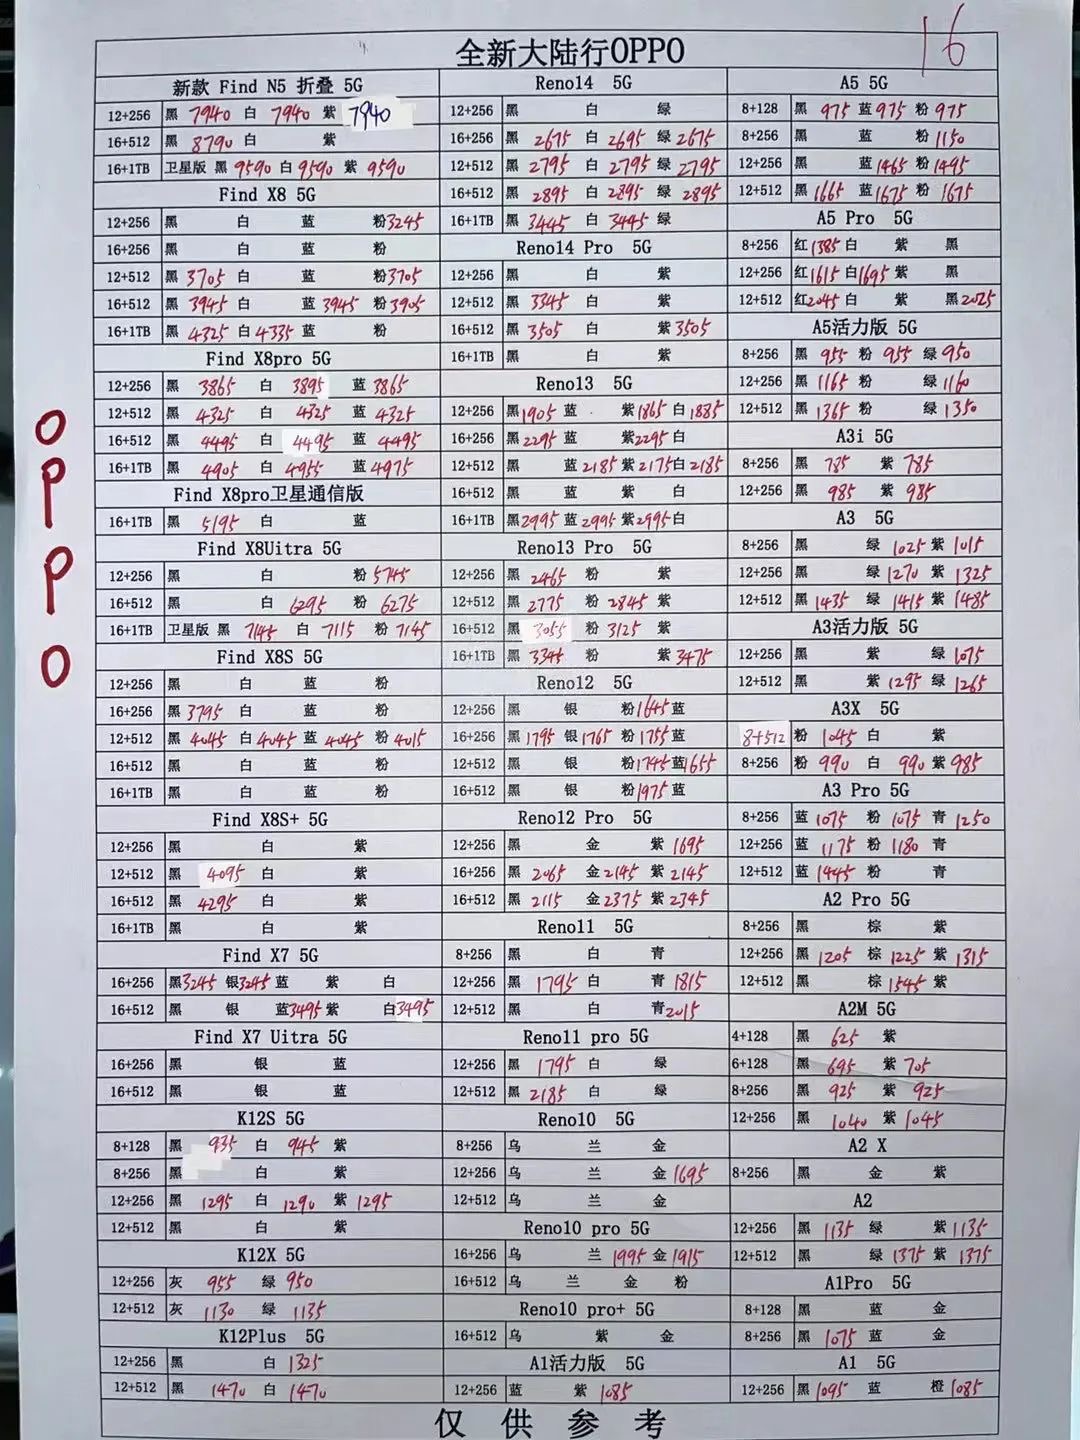 16
全新大陆行OPPO
OPPO
新款 Find N5 折叠 5G
12+256 黑 7940 白 7940 紫 7940
16+512 黑 8790 白 紫
16+1TB 卫星版 黑 9590 白 9590 紫 9590
Find X8 5G
12+256 黑 白 蓝 粉 3245
16+256 黑 白 蓝 粉
12+512 黑 3705 白 蓝 粉 3705
16+512 黑 3945 白 蓝 3945 粉 3905
16+1TB 黑 4325 白 4335 蓝 粉
Find X8pro 5G
12+256 黑 3865 白 3895 蓝 3865
12+512 黑 4325 白 4325 蓝 4325
16+512 黑 4495 白 4495 蓝 4495
16+1TB 黑 4905 白 4955 蓝 4975
Find X8pro卫星通信版
16+1TB 黑 5195 白 蓝
Find X8Uitra 5G
12+256 黑 白 粉 5745
16+512 黑 白 6295 粉 6275
16+1TB 卫星版 黑 7145 白 7115 粉 7145
Find X8S 5G
12+256 黑 白 蓝 粉
16+256 黑 3795 白 蓝 粉
12+512 黑 4045 白 4045 蓝 4045 粉 4015
16+512 黑 白 蓝 粉
16+1TB 黑 白 蓝 粉
Find X8S+ 5G
12+256 黑 白 紫
12+512 黑 4095 白 紫
16+512 黑 4295 白 紫
16+1TB 黑 白 紫
Find X7 5G
16+256 黑 3245 银 3245 蓝 紫 白
16+512 黑 银 蓝 3495 紫 白 3495
Find X7 Uitra 5G
16+256 黑 银 蓝
16+512 黑 银 蓝
K12S 5G
8+128 黑 935 白 945 紫
8+256 黑 白 紫
12+256 黑 1295 白 1290 紫 1295
12+512 黑 白 紫
K12X 5G
12+256 灰 955 绿 950
12+512 灰 1130 绿 1135
K12Plus 5G
12+256 黑 白 1325
12+512 黑 1470 白 1470
Reno14 5G
12+256 黑 白 绿
16+256 黑 2675 白 2695 绿 2675
12+512 黑 2795 白 2795 绿 2795
16+512 黑 2895 白 2895 绿 2895
16+1TB 黑 3445 白 3445 绿
Reno14 Pro 5G
12+256 黑 白 紫
12+512 黑 3345 白 紫
16+512 黑 3505 白 紫 3505
16+1TB 黑 白 紫
Reno13 5G
12+256 黑 1905 蓝 紫 1865 白 1885
16+256 黑 2295 蓝 紫 2295 白
12+512 黑 蓝 2185 紫 2175 白 2185
16+512 黑 蓝 紫 白
16+1TB 黑 2995 蓝 2995 紫 2995 白
Reno13 Pro 5G
12+256 黑 2465 粉 紫
12+512 黑 2775 粉 2845 紫
16+512 黑 3055 粉 3125 紫
16+1TB 黑 3345 粉 紫 3475
Reno12 5G
12+256 黑 银 粉 1645 蓝
16+256 黑 1795 银 1765 粉 1755 蓝
12+512 黑 银 粉 1745 蓝 1655
16+512 黑 银 粉 1975 蓝
Reno12 Pro 5G
12+256 黑 金 紫 1695
16+256 黑 2065 金 2145 紫 2145
16+512 黑 2115 金 2375 紫 2345
Reno11 5G
8+256 黑 白 青
12+256 黑 1795 白 青 1815
12+512 黑 白 青 2015
Reno11 pro 5G
12+256 黑 1795 白 绿
12+512 黑 2185 白 绿
Reno10 5G
8+256 乌 兰 金
12+256 乌 兰 金 1695
12+512 乌 兰 金
Reno10 pro 5G
16+256 乌 兰 1995 金 1915
16+512 乌 兰 金 粉
Reno10 pro+ 5G
16+512 乌 紫 金
A1活力版 5G
12+256 蓝 紫 1085
A5 5G
8+128 黑 975 蓝 975 粉 975
8+256 黑 蓝 粉 1150
12+256 黑 蓝 1465 粉 1495
12+512 黑 1665 蓝 1675 粉 1675
A5 Pro 5G
8+256 红 1385 白 紫 黑
12+256 红 1615 白 1695 紫 黑
12+512 红 2045 白 紫 黑 2025
A5活力版 5G
8+256 黑 955 粉 955 绿 950
12+256 黑 1165 粉 绿 1160
12+512 黑 1365 粉 绿 1350
A3i 5G
8+256 黑 785 紫 785
12+256 黑 985 紫 985
A3 5G
8+256 黑 绿 1025 紫 1015
12+256 黑 绿 1270 紫 1325
12+512 黑 1435 绿 1415 紫 1485
A3活力版 5G
12+256 黑 紫 绿 1075
12+512 黑 紫 1295 绿 1265
A3X 5G
8+512 粉 1045 白 紫
8+256 粉 990 白 990 紫 985
A3 Pro 5G
8+256 蓝 1075 粉 1075 青 1250
12+256 蓝 1175 粉 1180 青
12+512 蓝 1445 粉 青
A2 Pro 5G
8+256 黑 棕 紫
12+256 黑 1205 棕 1225 紫 1315
12+512 黑 棕 1545 紫
A2M 5G
4+128 黑 625 紫
6+128 黑 695 紫 705
8+256 黑 925 紫 925
12+256 黑 1040 紫 1045
A2 X
8+256 黑 金 紫
A2
12+256 黑 1135 绿 紫 1135
12+512 黑 绿 1375 紫 1375
A1Pro 5G
8+128 黑 蓝 金
8+256 黑 1075 蓝 金
A1 5G
12+256 黑 1095 蓝 橙 1085
仅供参考